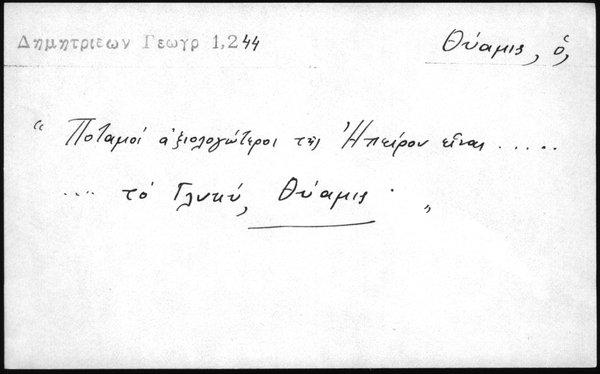 Δημητριεων Γεωγρ 1,244
Θύαμις, ὁ,
“ Ποταμοί ἀξιολογώτεροι τῆς Ἠπείρου εἶναι .....
.... τό Γλυκύ, Θύαμις . „